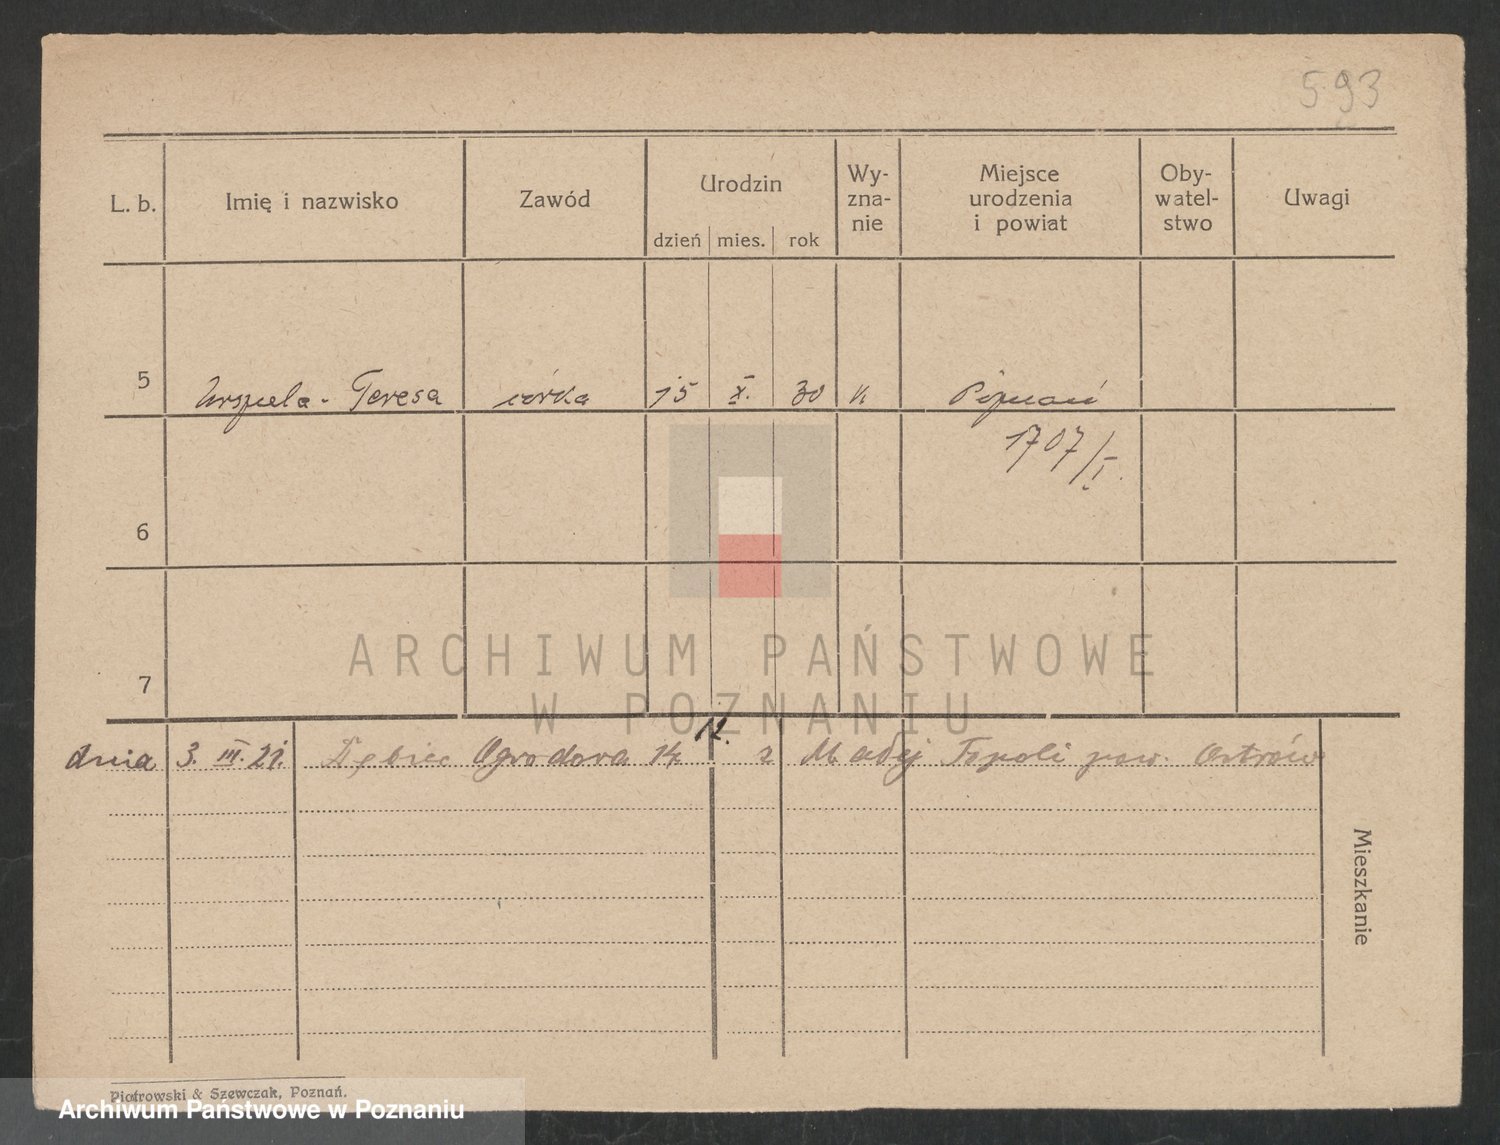 593
L. b. Imię i nazwisko Zawód Urodzin Wy-zna-nie Miejsce urodzenia i powiat Oby-watel-stwo Uwagi
dzień mies. rok
5 Urszula - Teresa córka 15 X. 30 k Poznań
1707/I.
6
7
ARCHIWUM PAŃSTWOWE
W POZNANIU
12.
dnia 3. III. 21. Dębiec Ogrodowa 14 2 Madej Topoli pow. Ostrów
Mieszkanie
Piotrowski & Szewczak, Poznań.
Archiwum Państwowe w Poznaniu